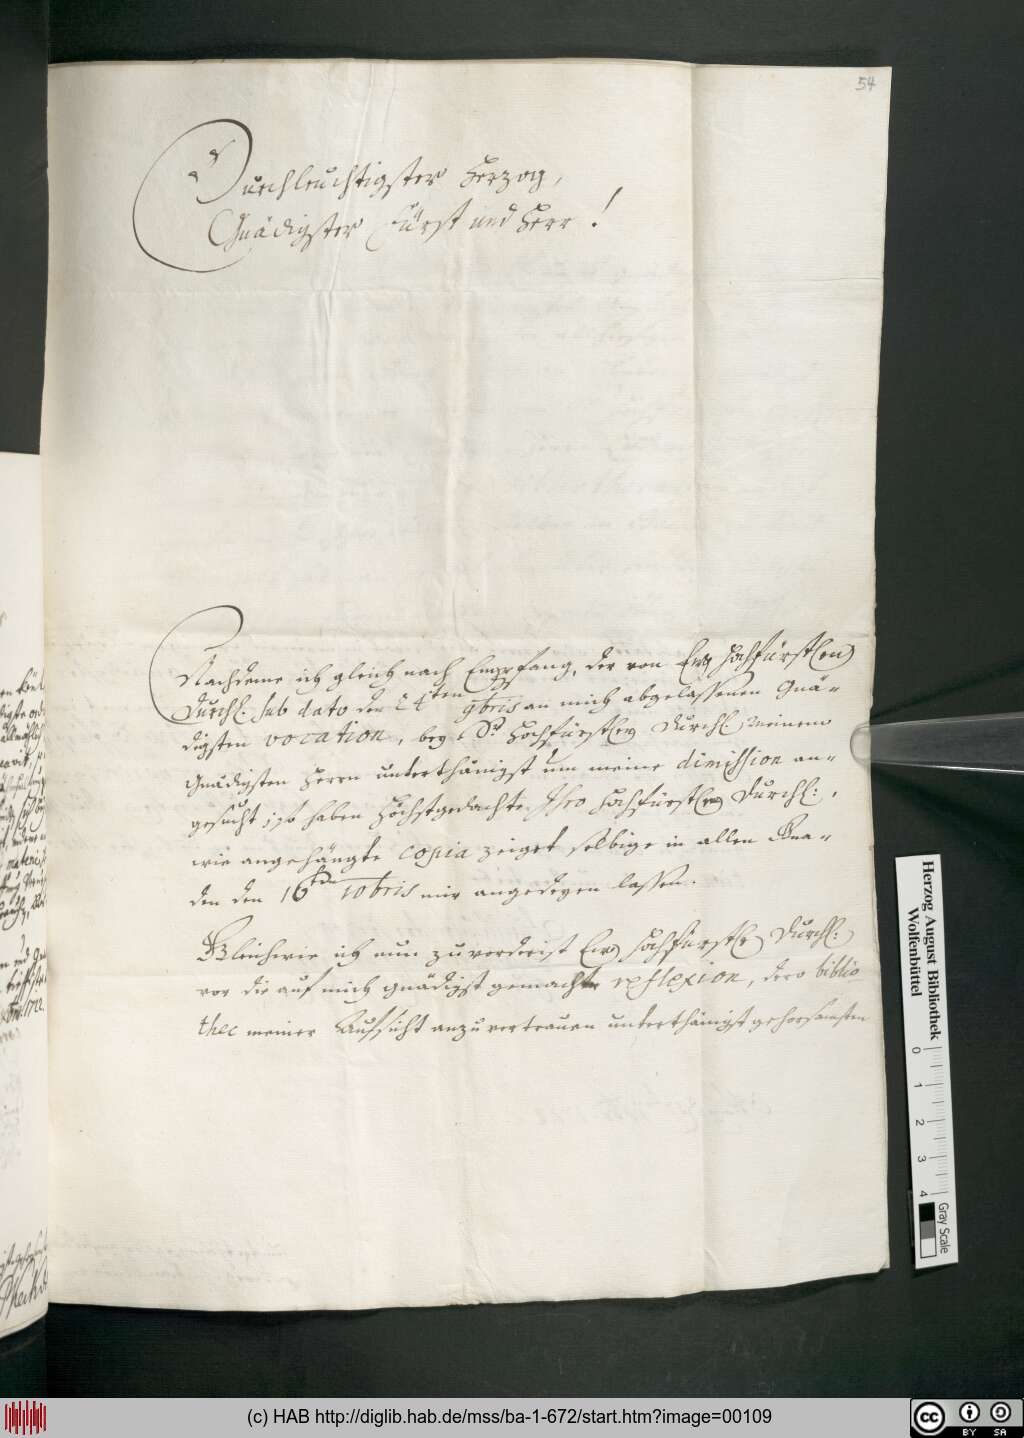 54
Durchleuchtigster Herzog,
Gnädigster Fürst und Herr!
Nachdeme ich gleich nach Empfang, der von Ew Hochfürstlen
Durchl: sub dato den 24ten 9bris an mich abgelassenen Gnä-
digsten vocation, bey Sr Hochfürstlen Durchl: Meinem
Gnädigsten Herrn unterthänigst um meine dimission an-
gesucht; so haben Höchstgedachte Ihro Hochfürstlen Durchl:,
wie angehängte copia zeiget selbige in allen Gna-
den den 16ten 10bris mir angedeyen lassen.
Gleichwie ich nun zuvorderist Ew Hochfürstlr Durchl:
vor die auf mich gnädigst gemachte reflexion, dero biblio
thec meiner Aufsicht anzuvertrauen unterthänigst gehorsamsten
Herzog August Bibliothek
Wolfenbüttel
0 1 2 3 4
Gray Scale
(c) HAB http://diglib.hab.de/mss/ba-1-672/start.htm?image=00109
cc BY SA